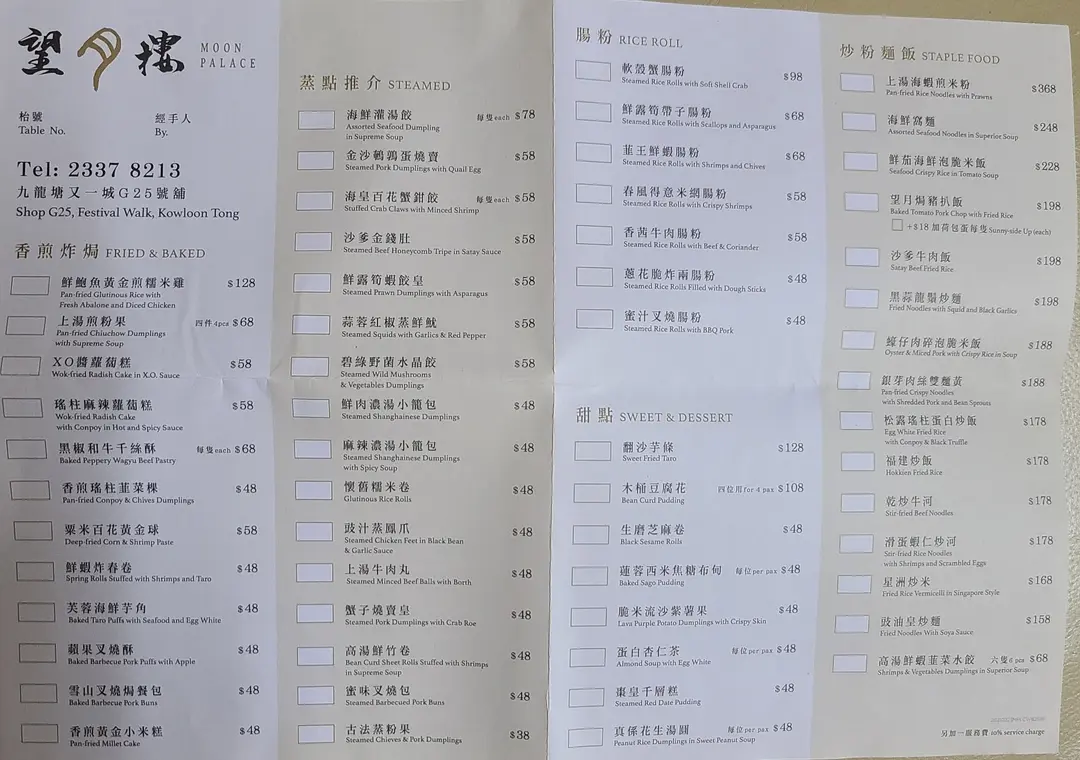 望月樓 MOON
PALACE
枱號 經手人
Table No. By.
Tel: 2337 8213
九龍塘又一城G25號舖
Shop G25, Festival Walk, Kowloon Tong
香煎炸焗 FRIED & BAKED
鮮鮑魚黃金煎糯米雞 $128
Pan-fried Glutinous Rice with
Fresh Abalone and Diced Chicken
上湯煎粉果 四件4pcs $68
Pan-fried Chiuchow Dumplings
with Supreme Soup
XO醬蘿蔔糕 $58
Wok-fried Radish Cake in X.O. Sauce
瑤柱麻辣蘿蔔糕 $58
Wok-fried Radish Cake
with Conpoy in Hot and Spicy Sauce
黑椒和牛千絲酥 每隻each $68
Baked Peppery Wagyu Beef Pastry
香煎瑤柱韮菜粿 $48
Pan-fried Conpoy & Chives Dumplings
粟米百花黃金球 $58
Deep-fried Corn & Shrimp Paste
鮮蝦炸春卷 $48
Spring Rolls Stuffed with Shrimps and Taro
芙蓉海鮮芋角 $48
Baked Taro Puffs with Seafood and Egg White
蘋果叉燒酥 $48
Baked Barbecue Pork Puffs with Apple
雪山叉燒焗餐包 $48
Baked Barbecue Pork Buns
香煎黃金小米糕 $48
Pan-fried Millet Cake
蒸點推介 STEAMED
海鮮灌湯餃 每隻each $78
Assorted Seafood Dumpling
in Supreme Soup
金沙鵪鶉蛋燒賣 $58
Steamed Pork Dumplings with Quail Egg
海皇百花蟹鉗餃 每隻each $58
Stuffed Crab Claws with Minced Shrimp
沙爹金錢肚 $58
Steamed Beef Honeycomb Tripe in Satay Sauce
鮮露筍蝦餃皇 $58
Steamed Prawn Dumplings with Asparagus
蒜蓉紅椒蒸鮮魷 $58
Steamed Squids with Garlics & Red Pepper
碧綠野菌水晶餃 $58
Steamed Wild Mushrooms
& Vegetables Dumplings
鮮肉濃湯小籠包 $48
Steamed Shanghainese Dumplings
麻辣濃湯小籠包 $48
Steamed Shanghainese Dumplings
with Spicy Soup
懷舊糯米卷 $48
Glutinous Rice Rolls
豉汁蒸鳳爪 $48
Steamed Chicken Feet in Black Bean
& Garlic Sauce
上湯牛肉丸 $48
Steamed Minced Beef Balls with Borth
蟹子燒賣皇 $48
Steamed Pork Dumplings with Crab Roe
高湯鮮竹卷 $48
Bean Curd Sheet Rolls Stuffed with Shrimps
in Supreme Soup
蜜味叉燒包 $48
Steamed Barbecued Pork Buns
古法蒸粉果 $38
Steamed Chieves & Pork Dumplings
腸粉 RICE ROLL
軟殼蟹腸粉 $98
Steamed Rice Rolls with Soft Shell Crab
鮮露筍帶子腸粉 $68
Steamed Rice Rolls with Scallops and Asparagus
韮王鮮蝦腸粉 $68
Steamed Rice Rolls with Shrimps and Chives
春風得意米網腸粉 $58
Steamed Rice Rolls with Crispy Shrimps
香茜牛肉腸粉 $58
Steamed Rice Rolls with Beef & Coriander
蔥花脆炸兩腸粉 $48
Steamed Rice Rolls Filled with Dough Sticks
蜜汁叉燒腸粉 $48
Steamed Rice Rolls with BBQ Pork
甜點 SWEET & DESSERT
翻沙芋條 $128
Sweet Fried Taro
木桶豆腐花 四位用for 4 pax $108
Bean Curd Pudding
生磨芝麻卷 $48
Black Sesame Rolls
蓮蓉西米焦糖布甸 每位per pax $48
Baked Sago Pudding
脆米流沙紫薯果 $48
Lava Purple Potato Dumplings with Crispy Skin
蛋白杏仁茶 每位per pax $48
Almond Soup with Egg White
棗皇千層糕 $48
Steamed Red Date Pudding
真係花生湯圓 每位per pax $48
Peanut Rice Dumplings in Sweet Peanut Soup
炒粉麵飯 STAPLE FOOD
上湯海蝦煎米粉 $368
Pan-fried Rice Noodles with Prawns
海鮮窩麵 $248
Assorted Seafood Noodles in Superior Soup
鮮茄海鮮泡脆米飯 $228
Seafood Crispy Rice in Tomato Soup
望月焗豬扒飯 $198
Baked Tomato Pork Chop with Fried Rice
+$18 加荷包蛋每隻 Sunny-side Up (each)
沙爹牛肉飯 $198
Satay Beef Fried Rice
黑蒜龍鬚炒麵 $198
Fried Noodles with Squid and Black Garlics
蠔仔肉碎泡脆米飯 $188
Oyster & Miced Pork with Crispy Rice in Soup
銀芽肉絲雙麵黃 $188
Pan-fried Crispy Noodles
with Shredded Pork and Bean Sprouts
松露瑤柱蛋白炒飯 $178
Egg White Fried Rice
with Conpoy & Black Truffle
福建炒飯 $178
Hokkien Fried Rice
乾炒牛河 $178
Stir-fried Beef Noodles
滑蛋蝦仁炒河 $178
Stir-fried Rice Noodles
with Shrimps and Scrambled Eggs
星洲炒米 $168
Fried Rice Vermicelli in Singapore Style
豉油皇炒麵 $158
Fried Noodles With Soya Sauce
高湯鮮蝦韮菜水餃 六隻6 pcs $68
Shrimps & Vegetables Dumplings in Superior Soup
另加一服務費 10% service charge